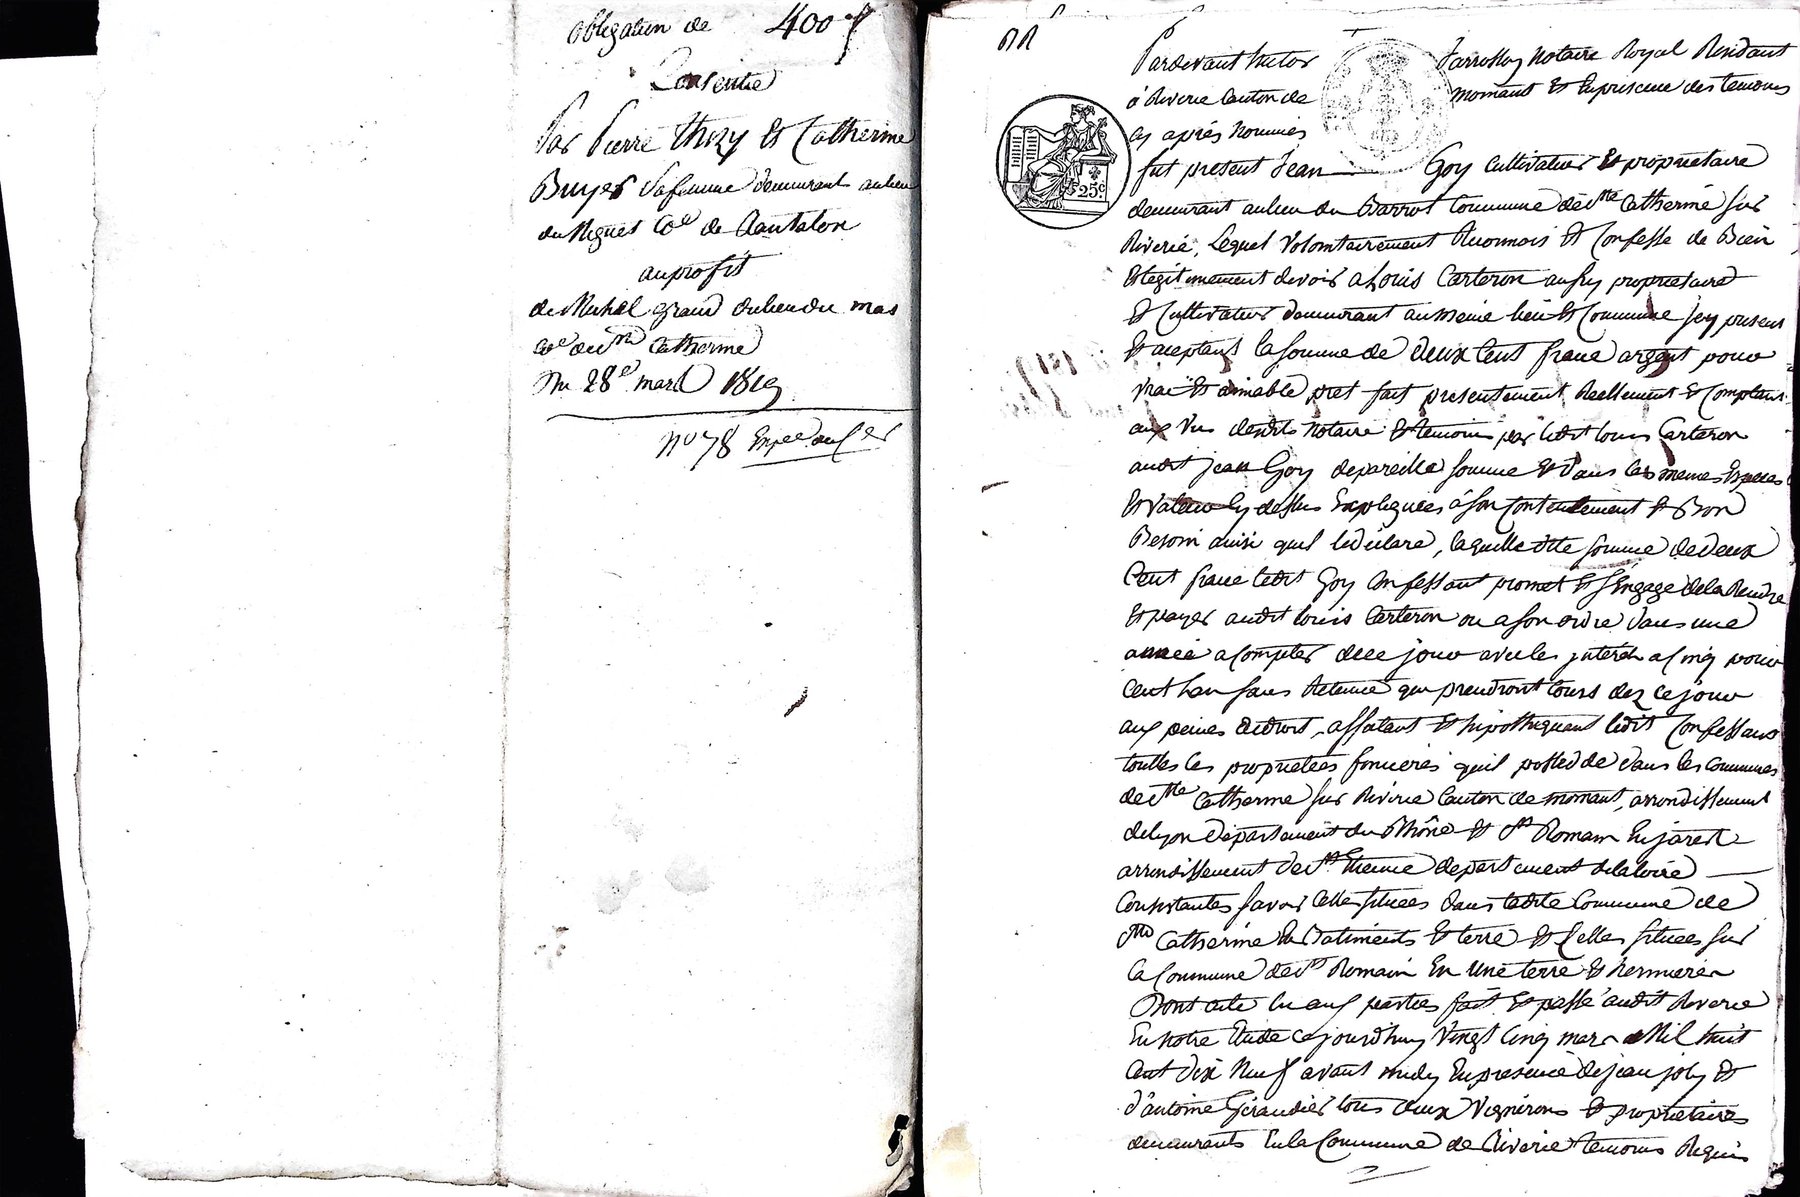 obligation de 400 f
Consentie
Par Pierre thizy Et Catherine
Buyer Safemme demeurant aulieu
du Coe de
auprofit
de Michel grand dulieu du mas
Coe de Ste Catherine
Du 28e mars 1819
No 78 Expee aux
Pardevant victor Jarrosson Notaire Royal Residant
à Riverie Canton de mornant Et En presence des temoins
cy après nommés
fut present Jean Goy Cultivateur Et proprietaire
demeurant aulieu du Barrot Commune de Ste Catherine sur
Riverie, Lequel Volontairement Reconnois Et Confesse de Bien
Et legitimement devoir a Louis Carteron aussy proprietaire
Et Cultivateur demeurant aumême lieu Et Commune jcy present
Et aceptant la somme de deux Cent franc argent pour
vrai Et aimable pret fait presentement Reellement Et Comptant
aux Vus desdits Notaire Et temoins par ledit louis Carteron
audit jean Goy depareille somme Et dans les memes Especes
Et Valeur Cy dessus Expliquées à son Contentement Et Bon
Besoin ainsi quil le déclare, laquelle ditte somme dedeux
Cent franc ledit Goy Confessant promet Et s'Engage dela Rendre
Et payer audit louis Carteron ou a son ordre dans une
année a Compter dece jour avec les jnterets a Cinq pour
Cent l'an sans Retenue qui prendront Cours dez ce jour
aux peines dedroit, affectant Et hipothequant ledit Confessant
touttes les proprietées foncieres quil possedde dans les Communes
de Ste Catherine sur Riverie Canton de mornant, arrondissement
delyon departement du Rhône Et St Romain En jarest
arrondissement de St Etienne departement delaloire
Consistantes savoir Celles situées dans ladite Commune de
Ste Catherine En Batiments Et terre Et Celles situées sur
la Commune de St Romain En une terre Et hermieres
Dont acte lu aux parties fait Et passé audit Riverie
En notre Etude cejourdhuy Vingt Cinq mars Mil huit
Cent dix Neuf avant midy En presence de jean joly Et
d'antoine Giraudier tous deux Vignerons Et proprietaires
demeurants En la Commune de Riverie temoins Requis
25c